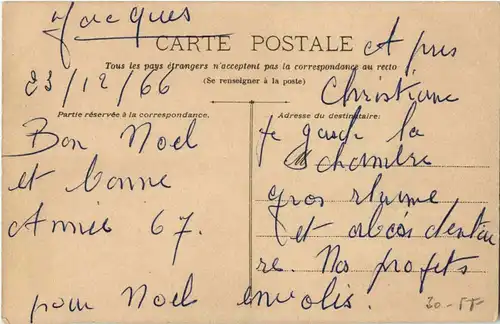 Jacques
CARTE POSTALE
Tous les pays étrangers n'acceptent pas la correspondance au recto
(Se renseigner à la poste)
23/12/66
Partie réservée à la correspondance.
Bon Noel
et bonne
Année 67.
Adresse du destinataire:
Après
Christiane
je garde la
chambre
gros rhume
et abcès dentai
re. Nos projets
pour Noel envolés.